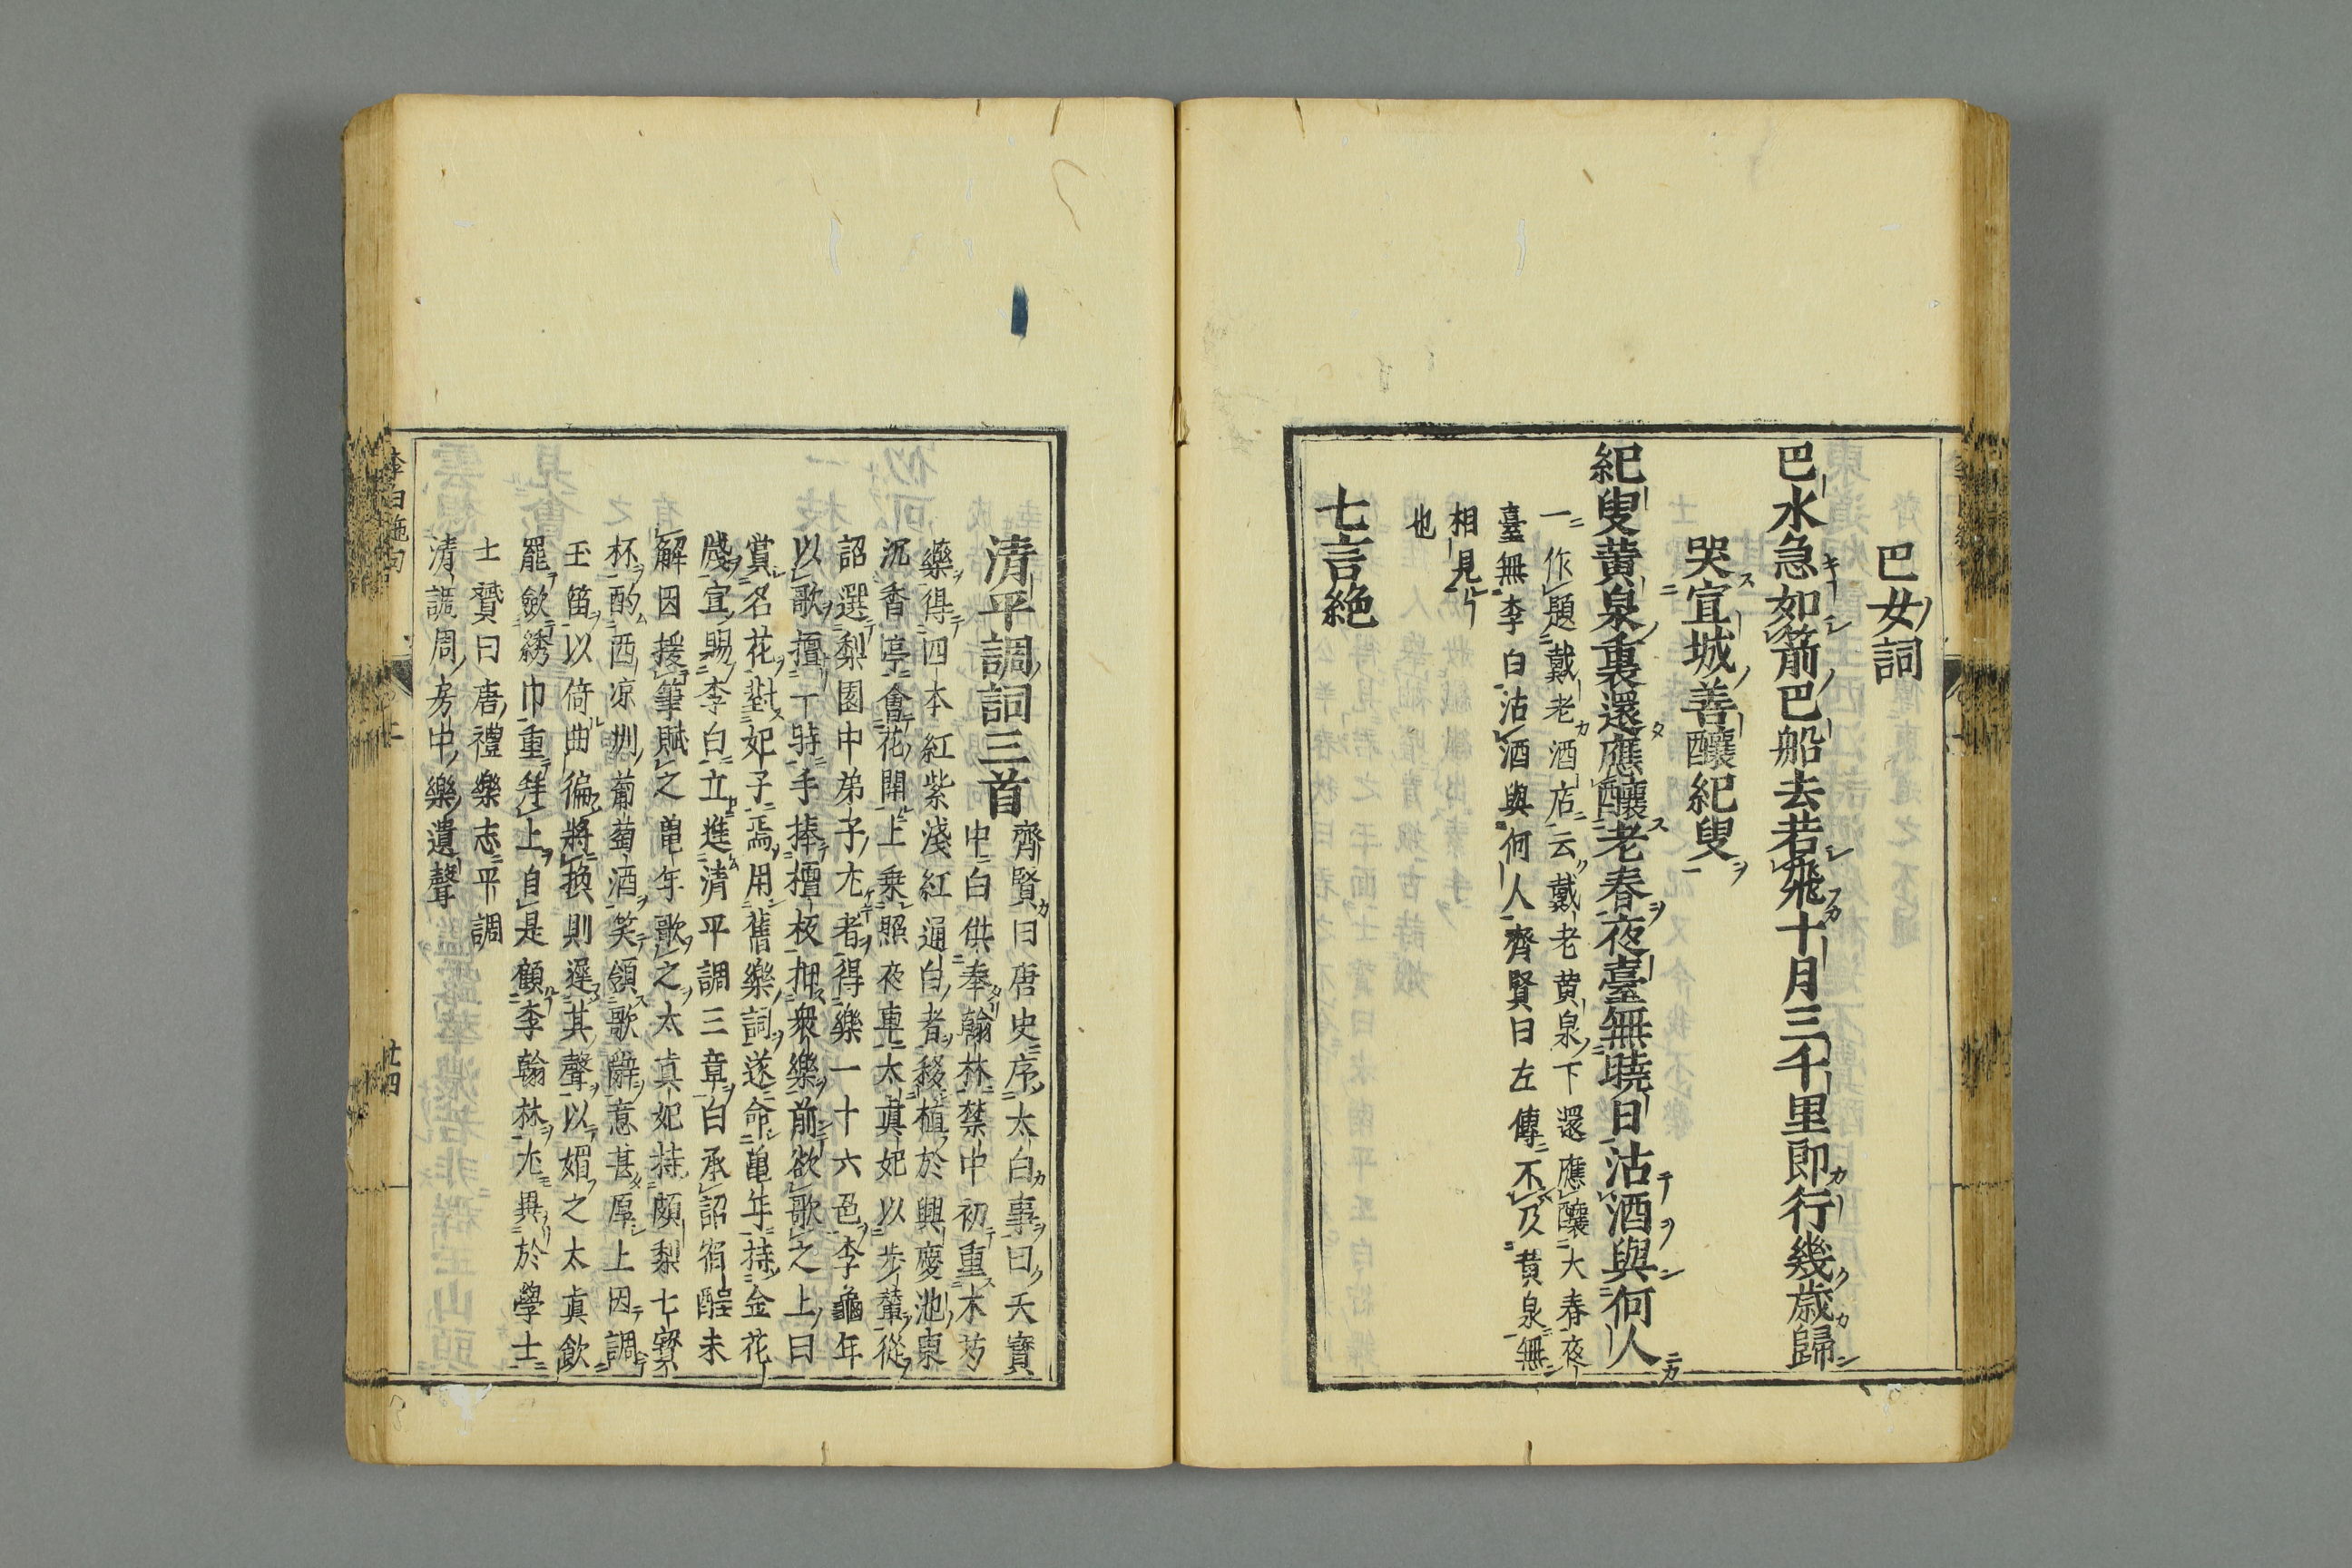 巴女詞
巴水急如箭巴船去若飛十月三千里郎行幾歲歸
哭宣城善釀紀叟
紀叟黃泉裏還應釀老春夜臺無曉日沽酒與何人
一作題戴老酒店云戴老黄泉下還應釀大春夜
臺無李白沽酒與何人齊賢曰左傳不及黄泉無
相見
也
七言絶
清平調詞三首
齊賢曰唐史序太白事曰天寶
中白供奉翰林禁中初重木芍
藥得四本紅紫淺紅通白者移植於興慶池東
沉香亭會花開上乗照夜車太真妃以步輦從
詔選梨園中弟子尤者得樂一十六色李龜年
以歌擅一時手捧檀板押衆樂前欲歌之上曰
賞名花對妃子焉用舊樂詞遂命龜年持金花
牋宣賜李白立進清平調三章白承詔宿酲未
解因援筆賦之龜年歌之太真妃持頗梨七寳
杯酌西凉州葡萄酒笑領歌辭意甚厚上因調
玉笛以倚曲徧將換則遲其聲以媚之太真飲
罷斂綉巾重拜上自是顧李翰林尤異於學士
士贇曰唐禮樂志平調
清調周房中樂遺聲
李白
廿四